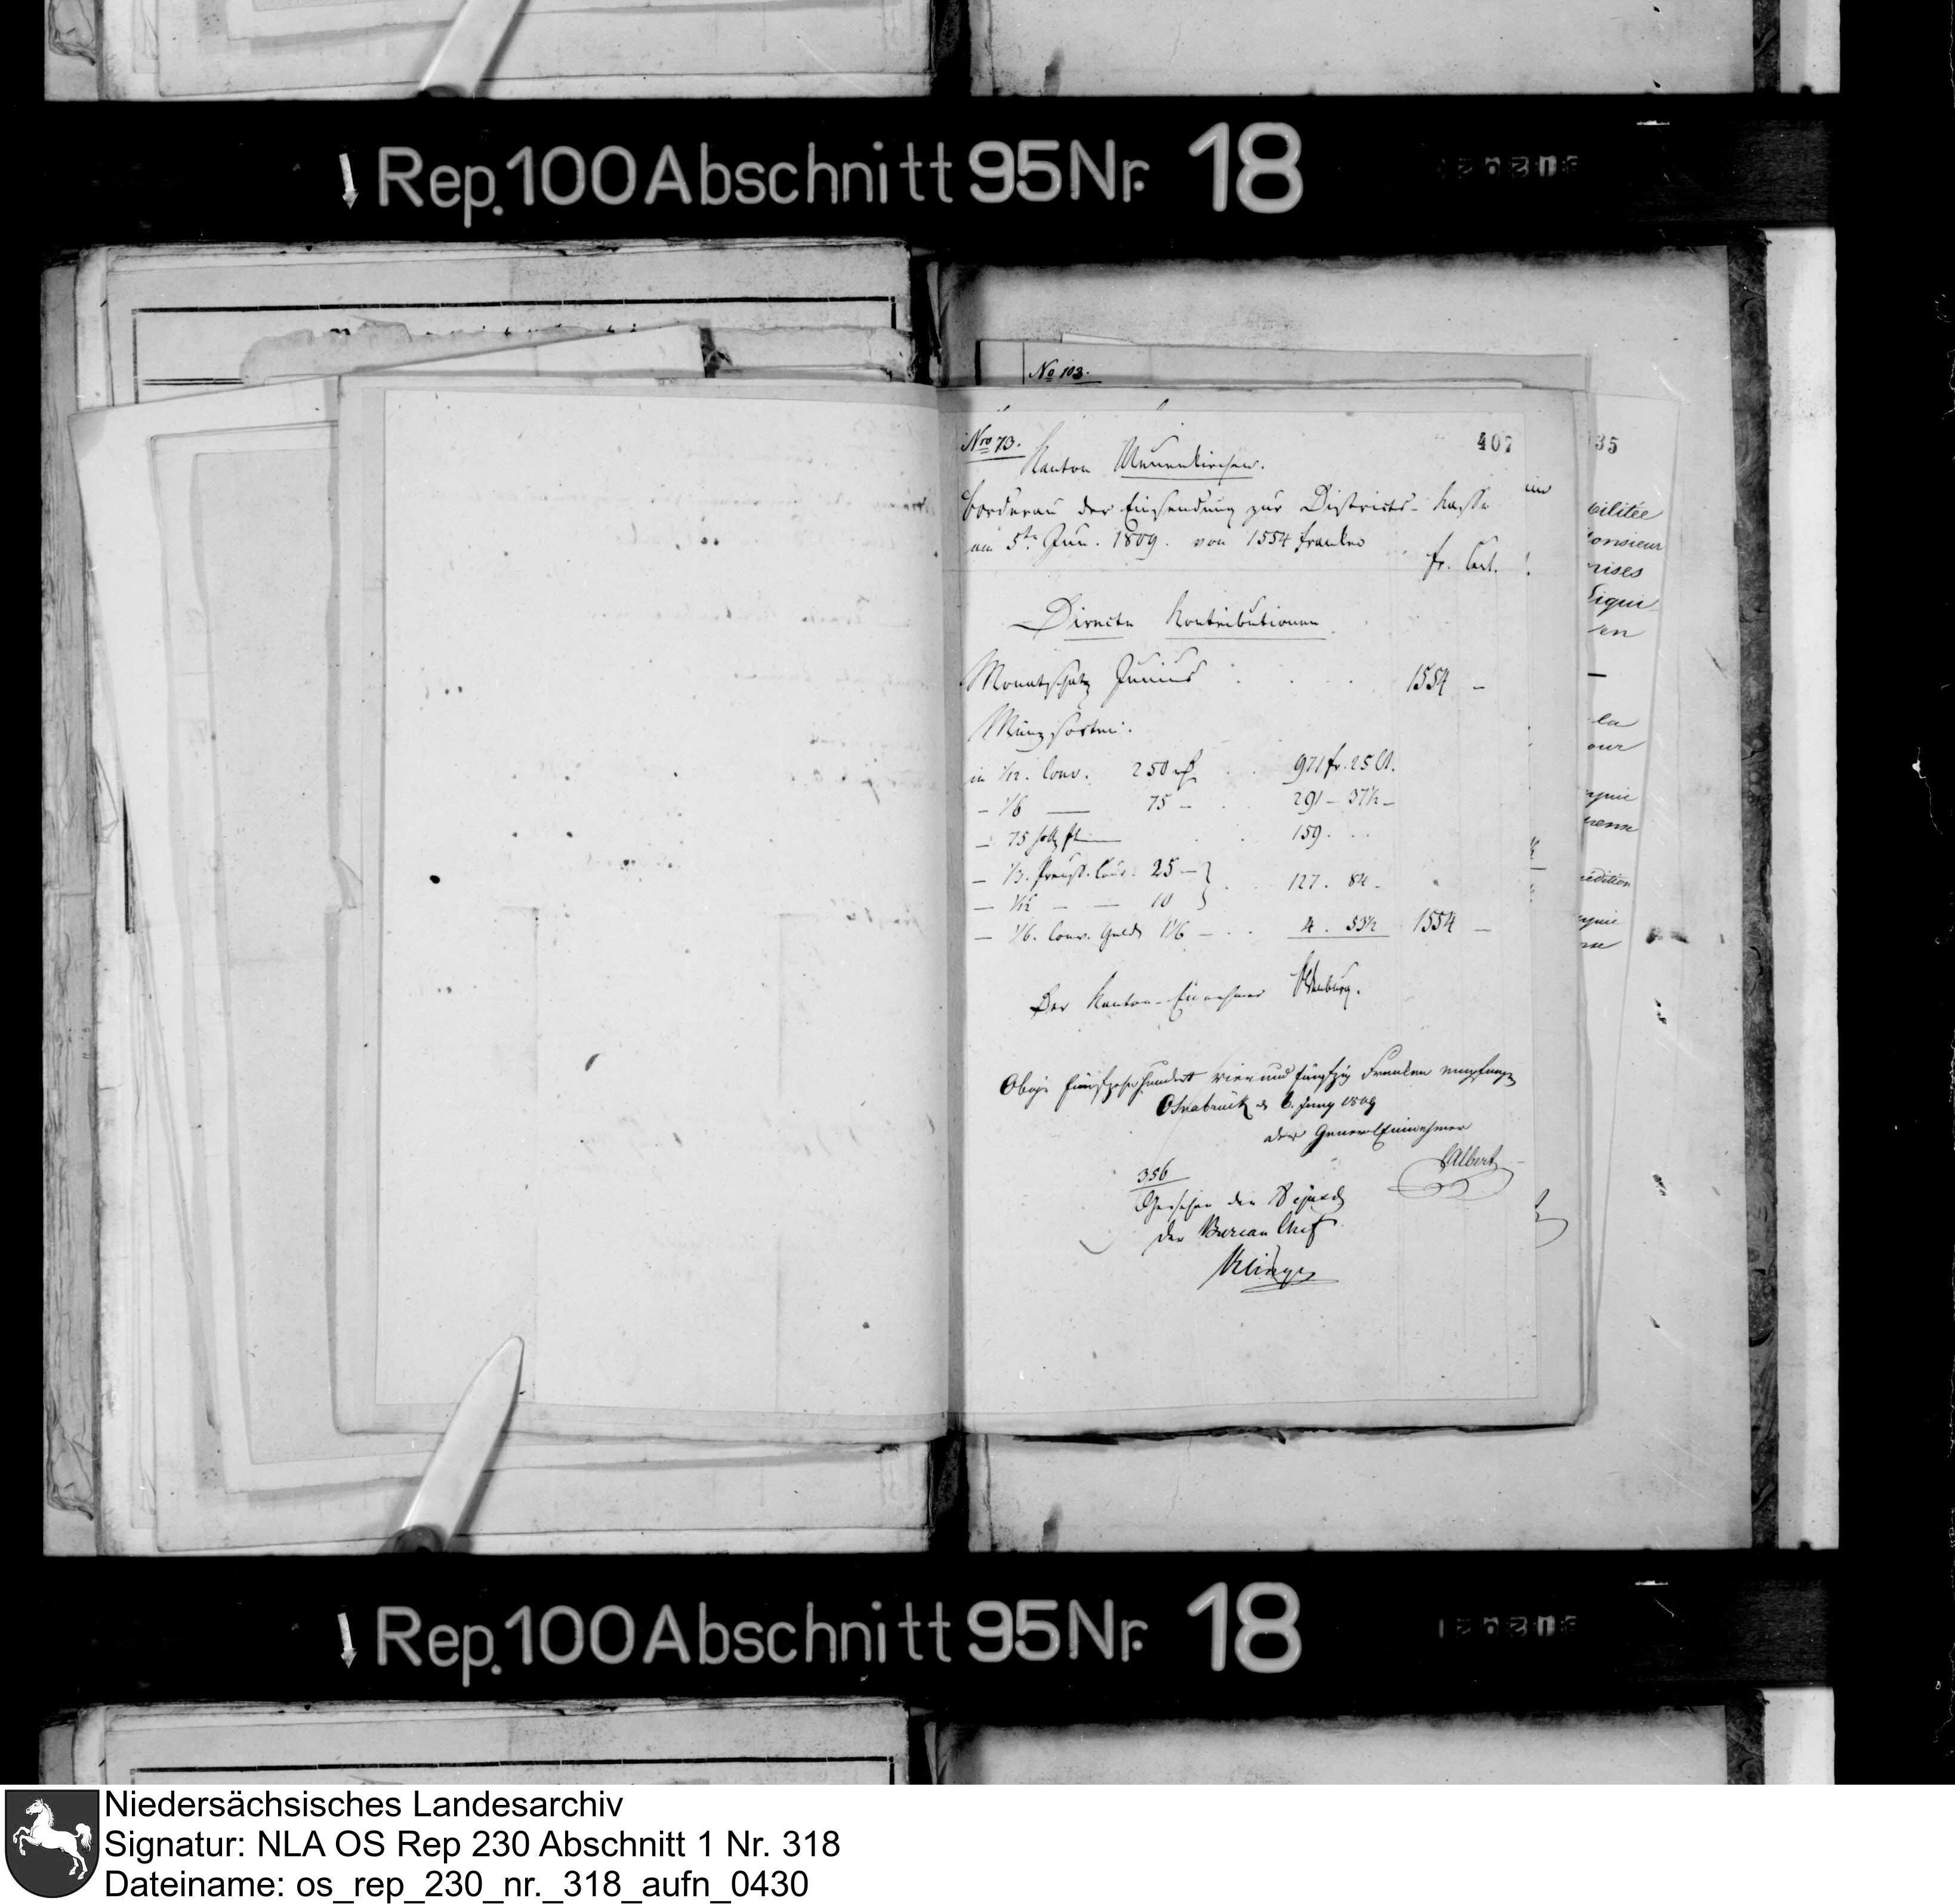 Rep. 100 Abschnitt 95 Nr. 18
No 103.
Nro 73.
407
35
Kanton Neuenkirchen.
Borderau der Einsendung zur Districts-Kasse
am 5ten Jun. 1809. von 1554 Franken
fr. Cent.
Directe Kontributionen
Monatschatz Junius . . . 1554 -
Münzsorten.
in 1/12. Conv. 250 rß . . 971 fr. 25 Ct.
- 1/6 — 75 - . . 291 - 37½ -
- 75 holl fl — . . 159 . . .
- 1/3. Preuß. Cour. 25 - } . . 127 . 84 -
- 1/12 - — 10 }
- 1/6. Conv. Geld 1 1/6 - . . 4 . 53½ 1554 -
Der Kanton-Einnehmer Oldenburg.
Obige fünfzehnhundert vier und fünfzig Franken empfangen
Osnabrück d 6. Juny 1809
der General Einnehmer
Albert
356
Gesehen
der Bureau Chef
bilitée
Monsieur
rises
en
la
our
édition
Rep. 100 Abschnitt 95 Nr. 18
Niedersächsisches Landesarchiv
Signatur: NLA OS Rep 230 Abschnitt 1 Nr. 318
Dateiname: os_rep_230_nr._318_aufn_0430